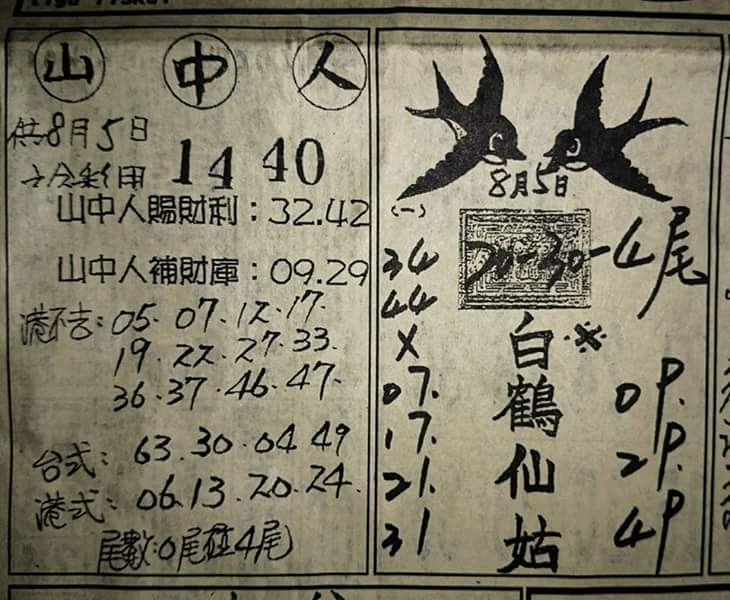 山中人
供8月5日
六合彩用 14 40
山中人賜財利：32.42
山中人補財庫：09.29
港不吉：05. 07. 12. 17.
19. 22. 27. 33.
36. 37. 46. 47.
台式：63. 30. 04 49
港式：06. 13. 20. 24.
尾數：0尾 4尾
8月5日
(一)
20-30-4尾
34
44
X
07.
17.
21.
31
白鶴仙姑
※
09.
29.
49